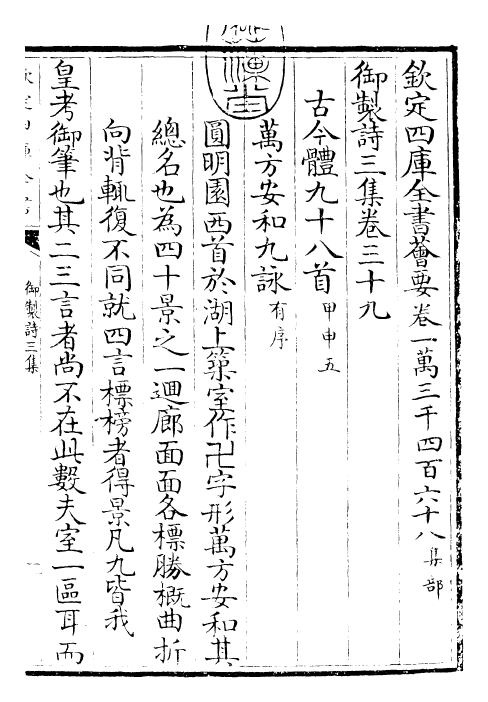 欽定四庫全書薈要卷一萬三千四百六十八集部
御製詩三集卷三十九
古今體九十八首甲申五
萬方安和九詠有序
圓明園西首於湖上築室作卍字形萬方安和其
總名也為四十景之一週廊面面各標勝概曲折
向背輒復不同就四言標榜者得景凡九皆我
皇考御筆也其二三言者尚不在此數夫室一區耳而
御製詩三集
一